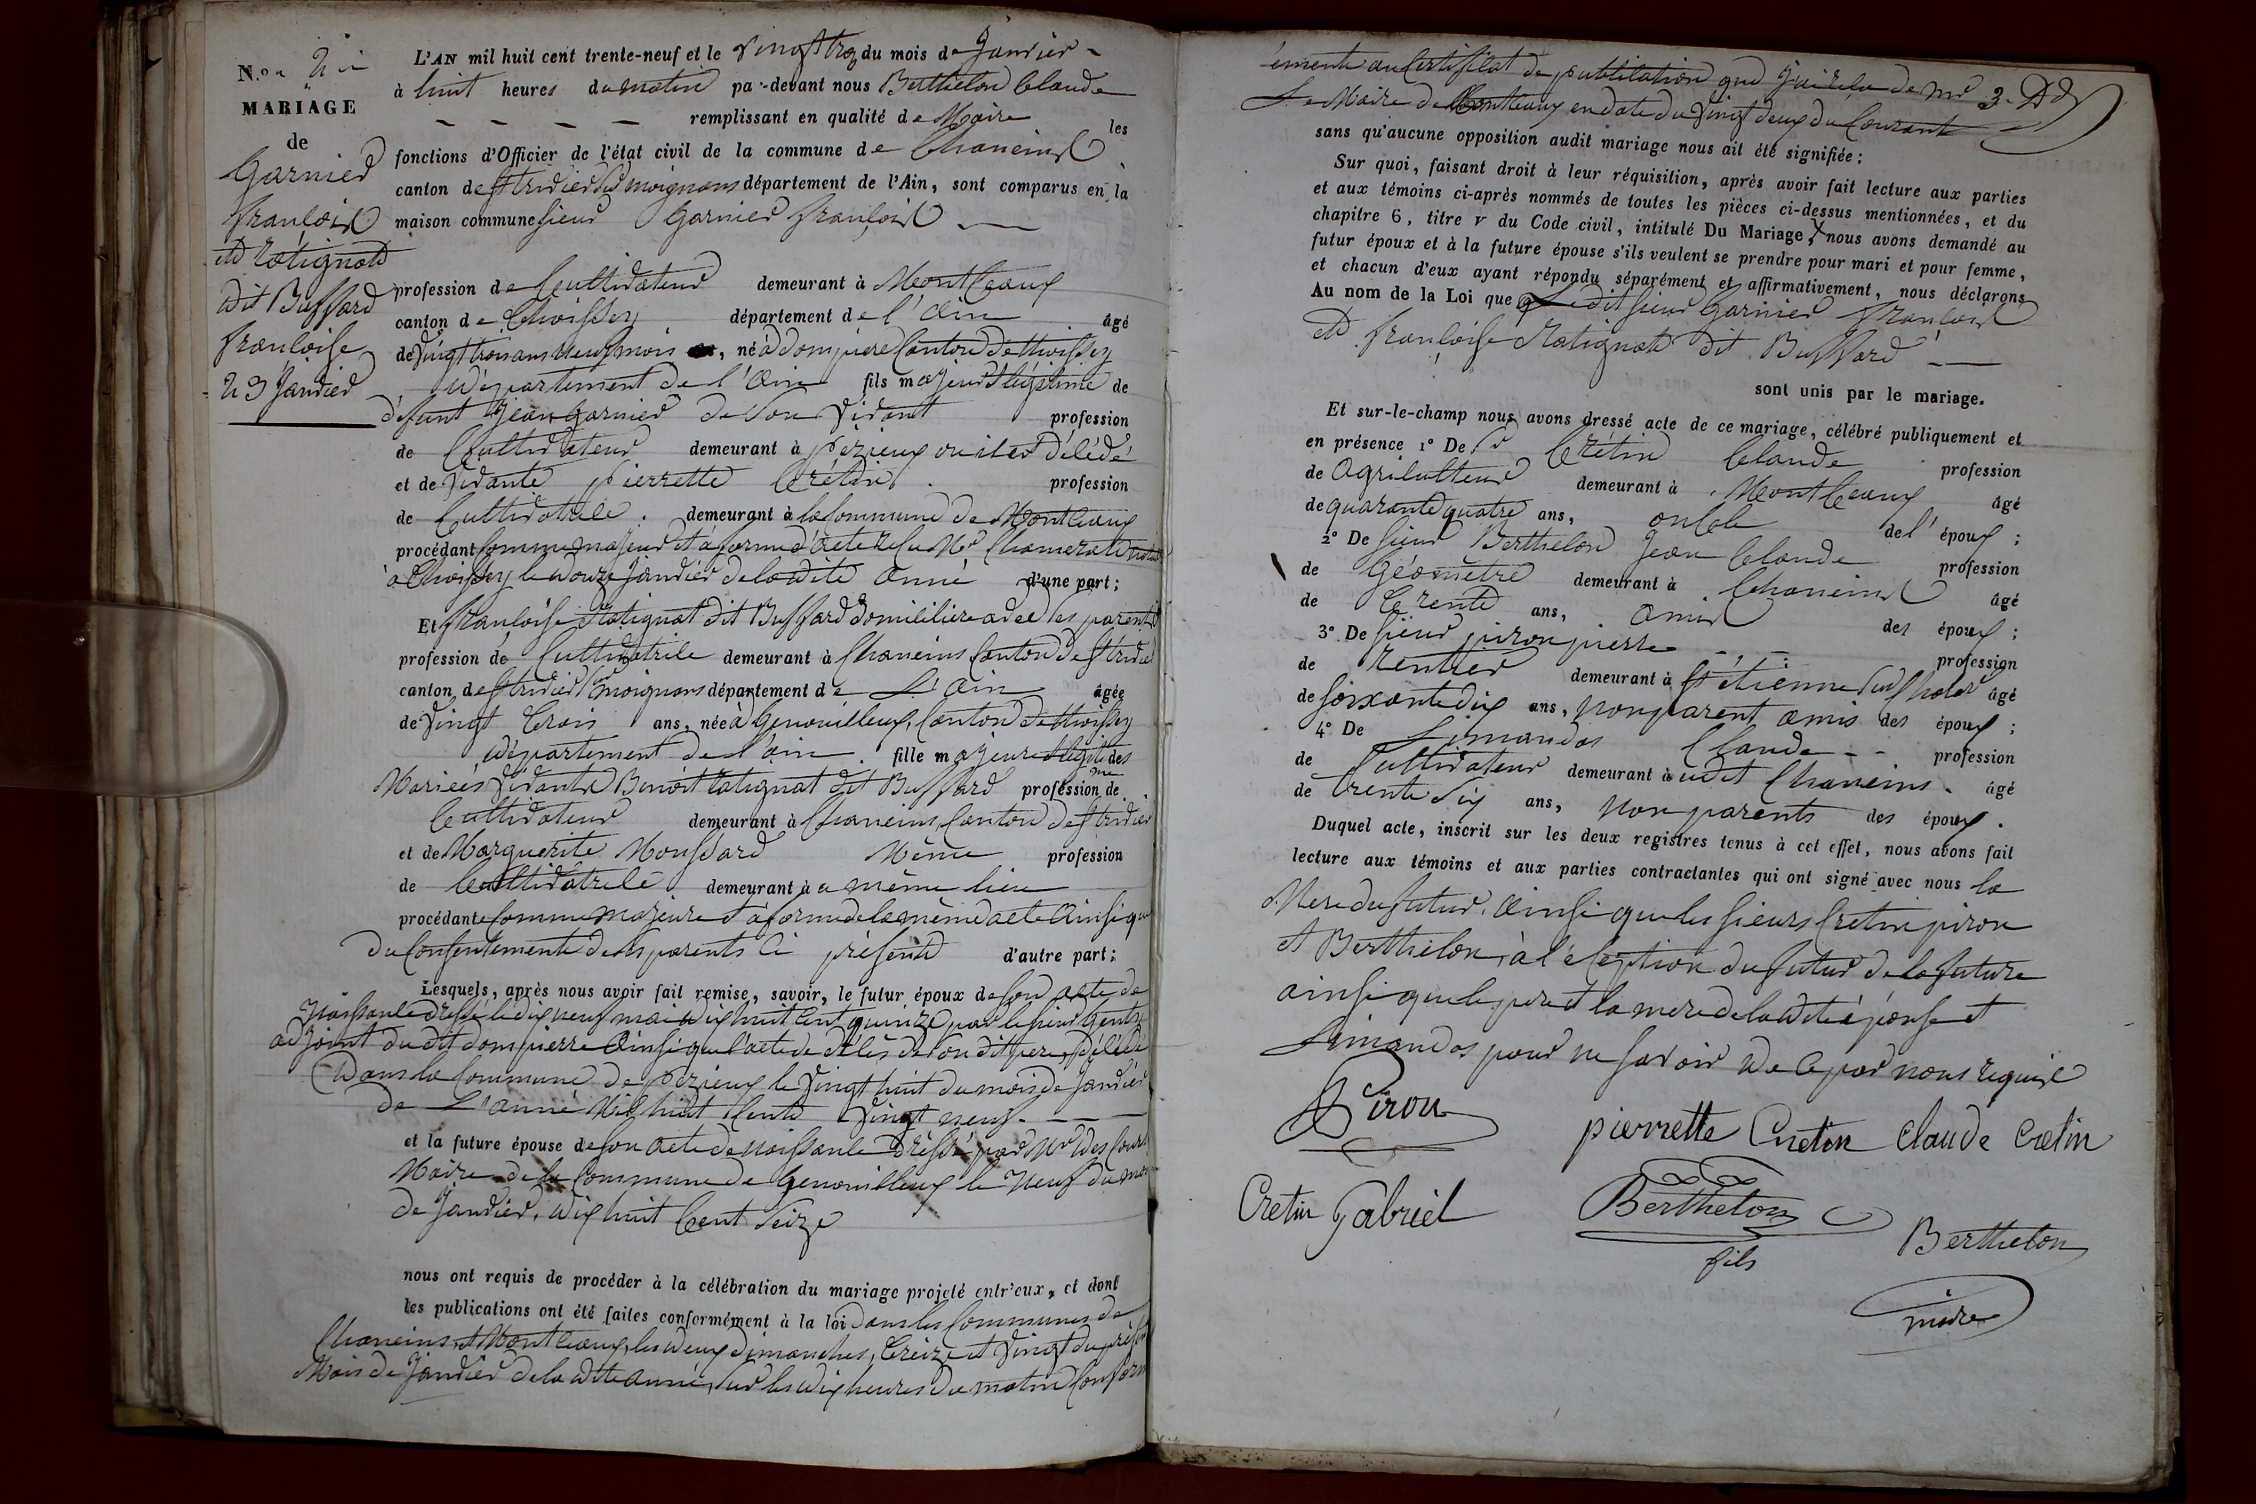 N.o 2
MARIAGE
de
Garnier
françois
et Ratignat
dit Buffard
françoise
23 Janvier
L'AN mil huit cent trente-neuf et le vingt trois du mois de Janvier
à huit heures du matin par-devant nous Berthelon Claude
remplissant en qualité de Maire les
fonctions d'Officier de l'état civil de la commune de Chaneins
canton de St trivier sur moignans département de l'Ain, sont comparus en la
maison commune sieur Garnier françois
profession de Cultivateur demeurant à Montceaux
canton de thoissey département de l'ain âgé
de vingt trois ans neuf mois, né à dompierre Canton de thoissey
département de l'ain fils majeur et légitime de
défunt jean Garnier de son vivant profession
de Cultivateur demeurant à pezieux ou il est décédé
et de vivante pierrette Crétin profession
de Cultivatrice demeurant à la Commune de Montceaux
procédant Comme majeur et à forme d'acte reçu Mr Chamerat notaire
à thoissey le douze janvier de la dite année d'une part;
Et françoise Ratignat dit Buffard domiciliée avec ses parents
profession de Cultivatrice demeurant à Chaneins Canton de St trivier
canton de St trivier sur moignans département de L'ain âgée
de vingt trois ans, née à Genouilleux, Canton de thoissey
département de l'ain fille majeure et légitime des
Mariés vivants Benoit Ratignat dit Buffard profession de
Cultivateur demeurant à Chaneins, Canton de St trivier
et de Marguerite Moussard Même profession
de Cultivatrice demeurant à même lieu
procédante Comme majeure et à forme de la même acte ainsi que
du Consentement de ses parents ci présents d'autre part;
Lesquels, après nous avoir fait remise, savoir, le futur époux de son acte de
Naissance dressé le dix neuf mai dix huit Cent quinze par le sieur
adjoint du dit dompierre ainsi que l'acte de décès de son dit père, décédé
Dans la Commune de pezieux le vingt huit du mois de janvier
de L'année Mil huit Cent vingt neuf
et la future épouse de son acte de naissance dressé par Mr
Maire de la Commune de Genouilleux le Neuf du mois
de Janvier, dix huit Cent seize
nous ont requis de procéder à la célébration du mariage projeté entr'eux, et dont
les publications ont été faites conformément à la loi dans les Communes de
Chaneins et Montceaux, les deux dimanches, treize et vingt du présent
Mois de janvier de la dite année, sur les dix heures du matin Conform
émente au Certificat de publication que j'ai reçu de mr
Le Maire de Montceaux en date du vingt deux du Courant
3.
sans qu'aucune opposition audit mariage nous ait été signifiée;
Sur quoi, faisant droit à leur réquisition, après avoir fait lecture aux parties
et aux témoins ci-après nommés de toutes les pièces ci-dessus mentionnées, et du
chapitre 6, titre v du Code civil, intitulé Du Mariage, nous avons demandé au
futur époux et à la future épouse s'ils veulent se prendre pour mari et pour femme,
et chacun d'eux ayant répondu séparément et affirmativement, nous déclarons
Au nom de la Loi que Le dit sieur Garnier françois
et françoise Ratignat dit Buffard
sont unis par le mariage.
Et sur-le-champ nous avons dressé acte de ce mariage, célébré publiquement et
en présence 1° De Sr Crétin Claude profession
de Agriculteur demeurant à Montceaux âgé
de quarante quatre ans, oncle de l'époux;
2° De sieur Berthelon Jean Claude profession
de Géomètre demeurant à Chaneins âgé
de trente ans, amis des époux;
3° De sieur piron pierre profession
de rentier demeurant à St étienne sur Chalar âgé
de soixante dix ans, non parent amis des époux;
4° De Limandas Claude profession
de Cultivateur demeurant à udit Chaneins âgé
de trente six ans, non parents des époux.
Duquel acte, inscrit sur les deux registres tenus à cet effet, nous avons fait
lecture aux témoins et aux parties contractantes qui ont signé avec nous la
Mère du futur, ainsi que les sieurs Cretin piron
et Berthelon, à l'éxeption du futur de la future
ainsi que le père et la mère de la dite épouse et
Limandas pour ne savoir de ce par nous requis
Piron
pierrette Cretin claude cretin
Cretin Gabriel
Berthelon
fils
Berthelon
maire